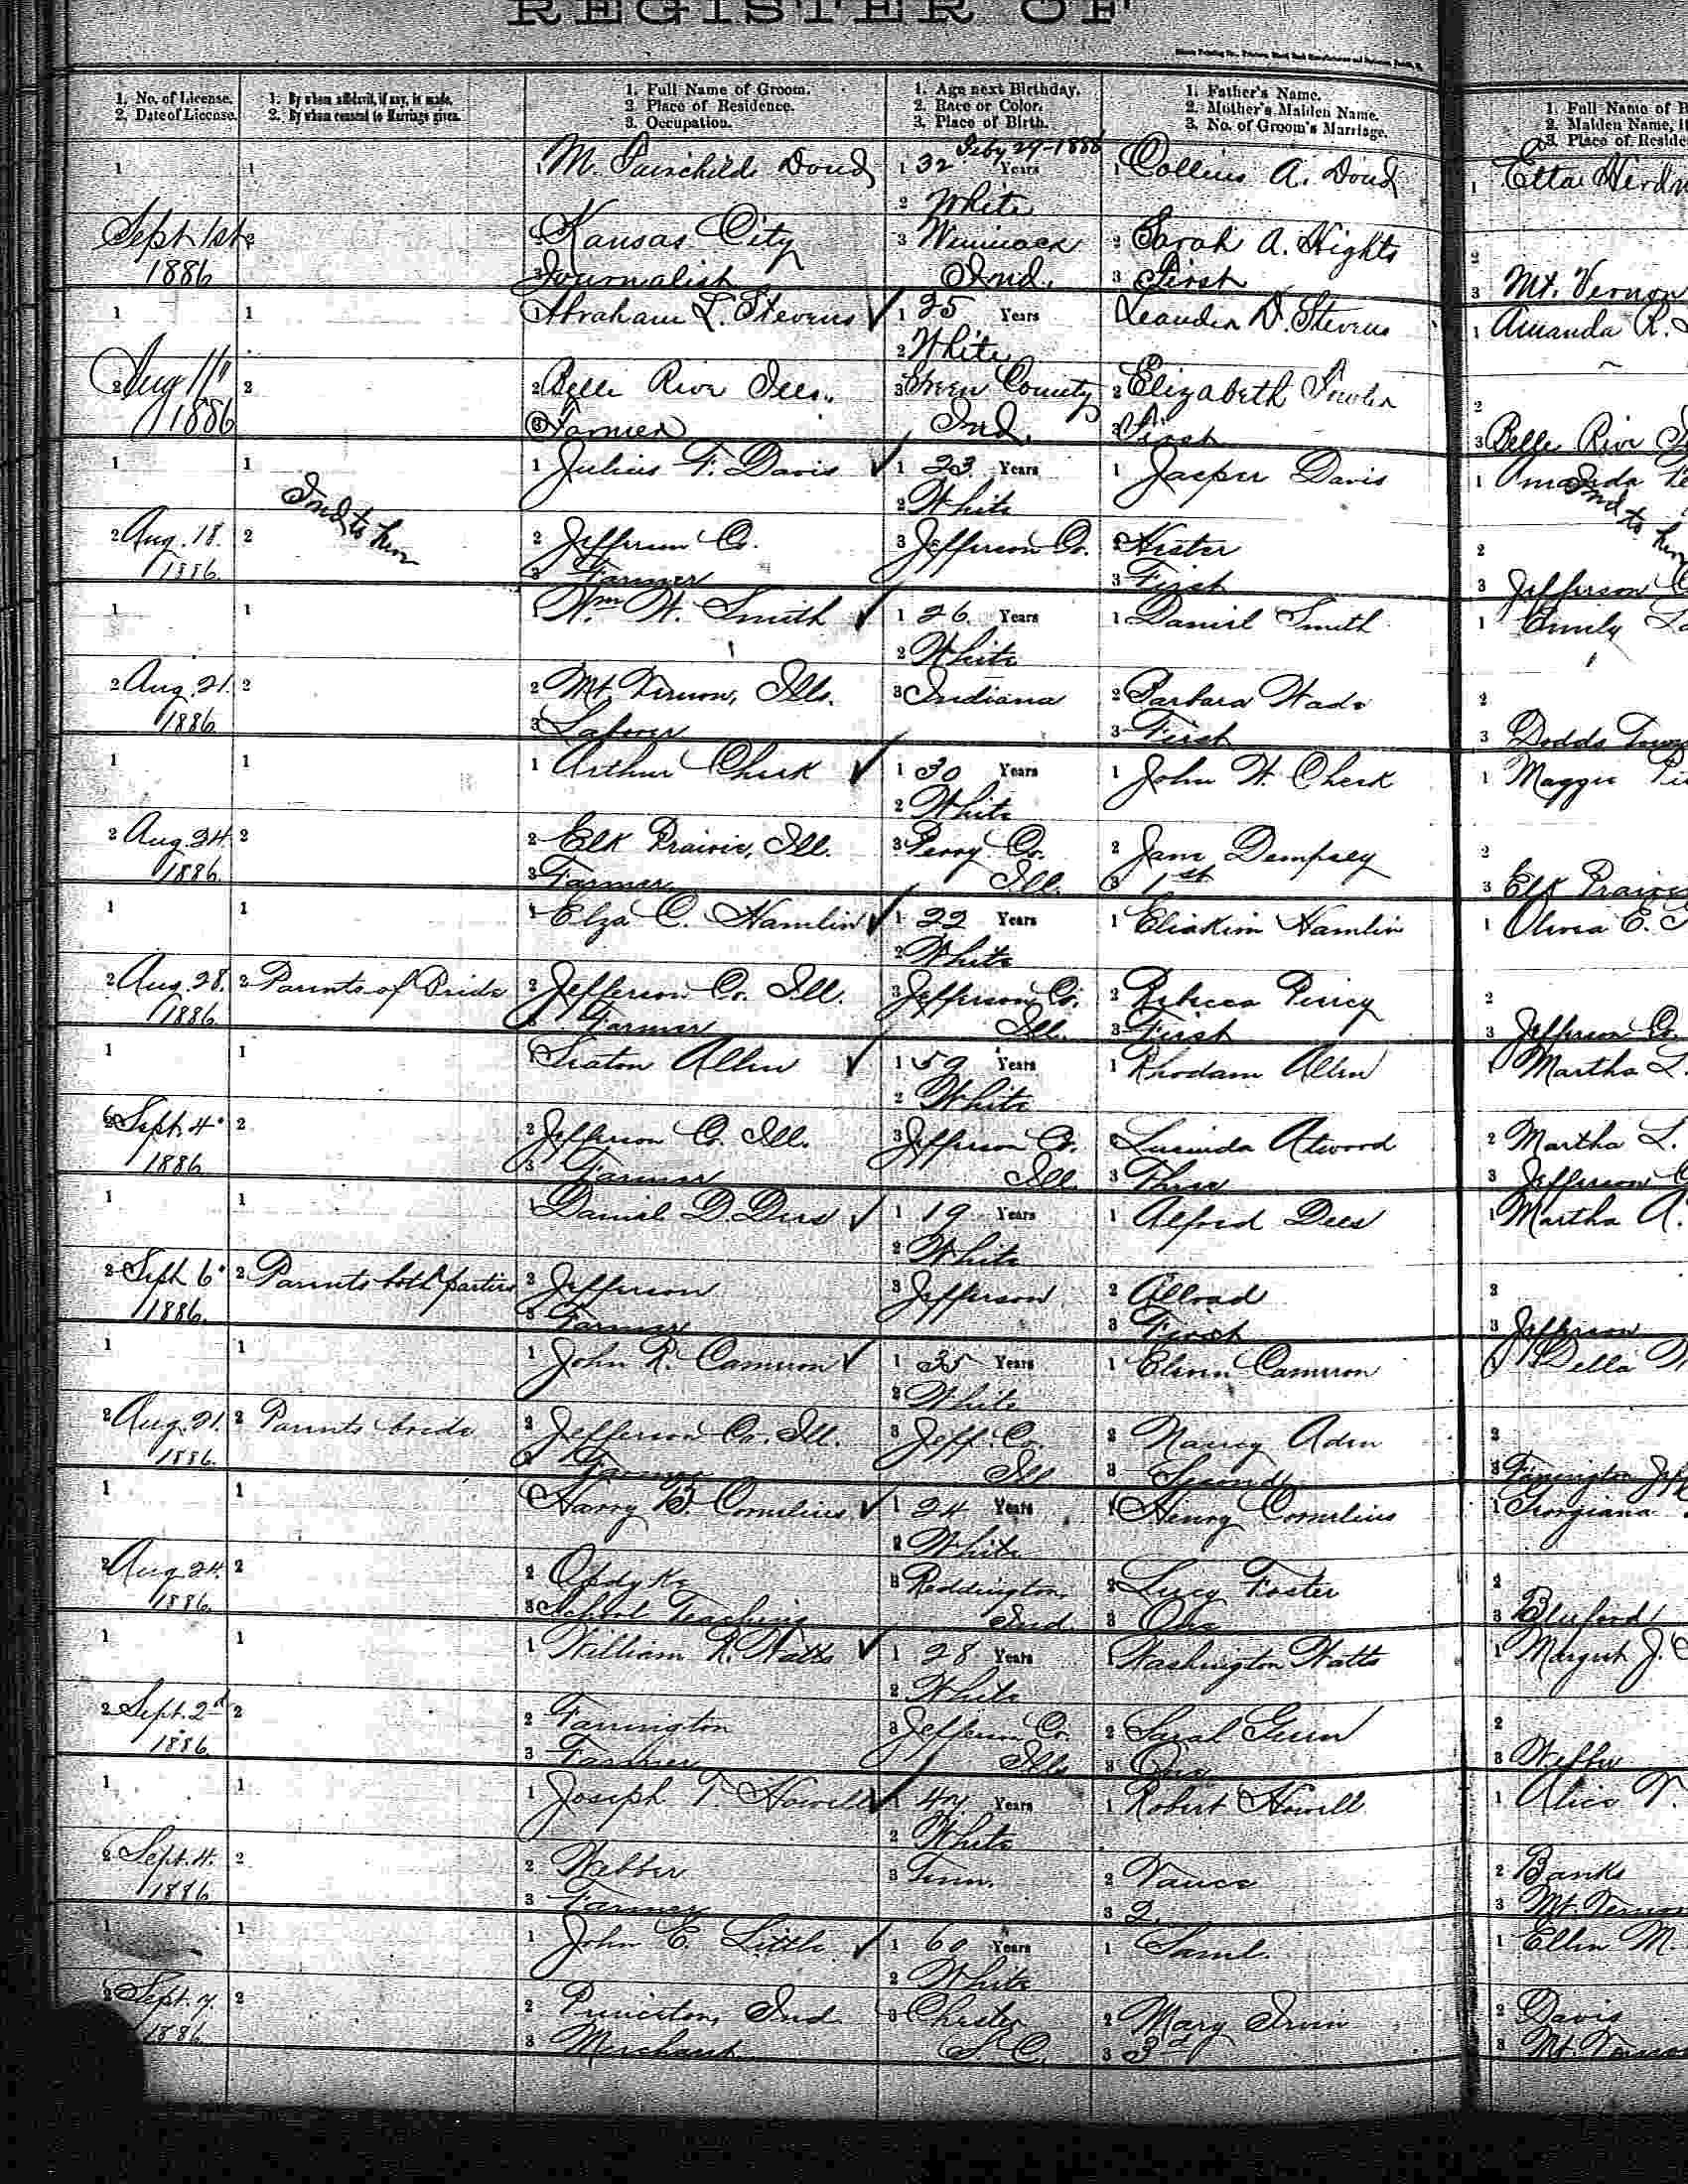 REGISTER OF
1. No. of License.
2. Date of License.
1. By whom affidavit, if any, is made.
2. By whom consent to Marriage given.
1. Full Name of Groom.
2. Place of Residence.
3. Occupation.
1. Age next Birthday.
2. Race or Color.
3. Place of Birth.
1. Father's Name.
2. Mother's Maiden Name.
3. No. of Groom's Marriage.
1. Full Name of B
2. Maiden Name, If
3. Place of Reside
1 1 M. Fairchild Doud 1 32 Years Feby 29-1888 1 Collins A. Doud 1 Etta
2 White
Sept 1st 2 2 Kansas City 3 2 Sarah A. Hights 2
1886 3 Journalist Ind. 3 First 3 Mt. Vernon
1 1 Abraham L. Stevens ✓ 1 25 Years Leander D. Stevens 1 Amanda R.
2 White
2 Aug 11" 2 2 Belle Rive Ills. 3 Green County 2 Elizabeth Fowler 2
1886 3 Farmer Ind. 3 First 3 Belle Rive
1 1 1 Julius F. Davis ✓ 1 23 Years 1 Jasper Davis 1 Amanda
Ind to him 2 White Ind to him
2 Aug. 18. 2 2 Jefferson Co. 3 Jefferson Co. 2 Hester 2
1886. 3 Farmer 3 First 3 Jefferson
1 1 1 Wm. H. Smith ✓ 1 26 Years 1 Daniel Smith 1 Emily
2 White
2 Aug. 21. 2 2 Mt. Vernon, Ills. 3 Indiana 2 Barbara Wade 2
1886. 3 Laborer 3 First 3 Dodds
1 1 1 Arthur Cheek ✓ 1 30 Years 1 John W. Cheek 1 Maggie
2 White
2 Aug. 24. 2 2 Elk Prairie, Ill. 3 Perry Co. 2 Jane Dempsey 2
1886. 3 Farmer Ill. 3 1st 3 Elk Prairie
1 1 1 Elza C. Hamlin ✓ 1 22 Years 1 Eliakim Hamlin 1 Olivia E.
2 White
2 Aug. 28. 2 Parents of Bride 2 Jefferson Co. Ill. 3 Jefferson Co. 2 Rebecca Piercy 2
1886. 3 Farmer Ill. 3 First 3 Jefferson Co.
1 1 Seaton Allen ✓ 1 59 Years 1 Rhodam Allen 1 Martha L.
2 White
Sept. 4. 2 2 Jefferson Co. Ill. 3 Jefferson Co. Lucinda Atwood 2 Martha L.
1886 3 Farmer Ill. 3 Three 3 Jefferson
1 1 1 Daniel D. Dees ✓ 1 19 Years 1 Alfred Dees 1 Martha A.
2 White
2 Sept. 6. 2 Parents both parties 2 Jefferson 3 Jefferson 2 Allrad 2
1886. 3 Farmer 3 First 3 Jefferson
1 1 1 John R. Cameron ✓ 1 35 Years 1 Cameron 1 Della
2 White
2 Aug. 21. 2 Parents bride 2 Jefferson Co. Ill. 3 Jeff. Co. 2 Nancy Aden 2
1886. 3 Farmer Ill 3 Second 3 Farrington
1 1 Harry B. Cornelius ✓ 1 24 Years 1 Henry Cornelius 1 Georgiana
2 White
2 Aug. 24. 2 2 Opdyke 3 Reddington, 2 Lucy Foster 2
1886. 3 School Teaching Ind. 3 One 3 Bluford
1 1 1 William R. Watts ✓ 1 28 Years 1 Washington Watts 1 Margret J.
2 White
2 Sept. 2d 2 2 Farrington 3 Jefferson Co. 2 Sarah Green 2
1886 3 Farmer Ills 3 One 3 Webber
1 1 1 Joseph T. Howell ✓ 1 Years 1 Robert Howell 1 Alice
2 White
2 Sept. 4. 2 2 Webber 3 Tenn. 2 Vance 2 Banks
1886 3 Farmer 3 2 3 Mt. Vernon
1 1 1 John E. Little ✓ 1 60 Years 1 Saml. 1 Ellen M.
2 White
2 Sept. 7. 2 2 Princeton, Ind 3 Chester 2 Mary Irvin 2 Davis
1886 3 Merchant S. C. 3 3d 3 Mt. Vernon